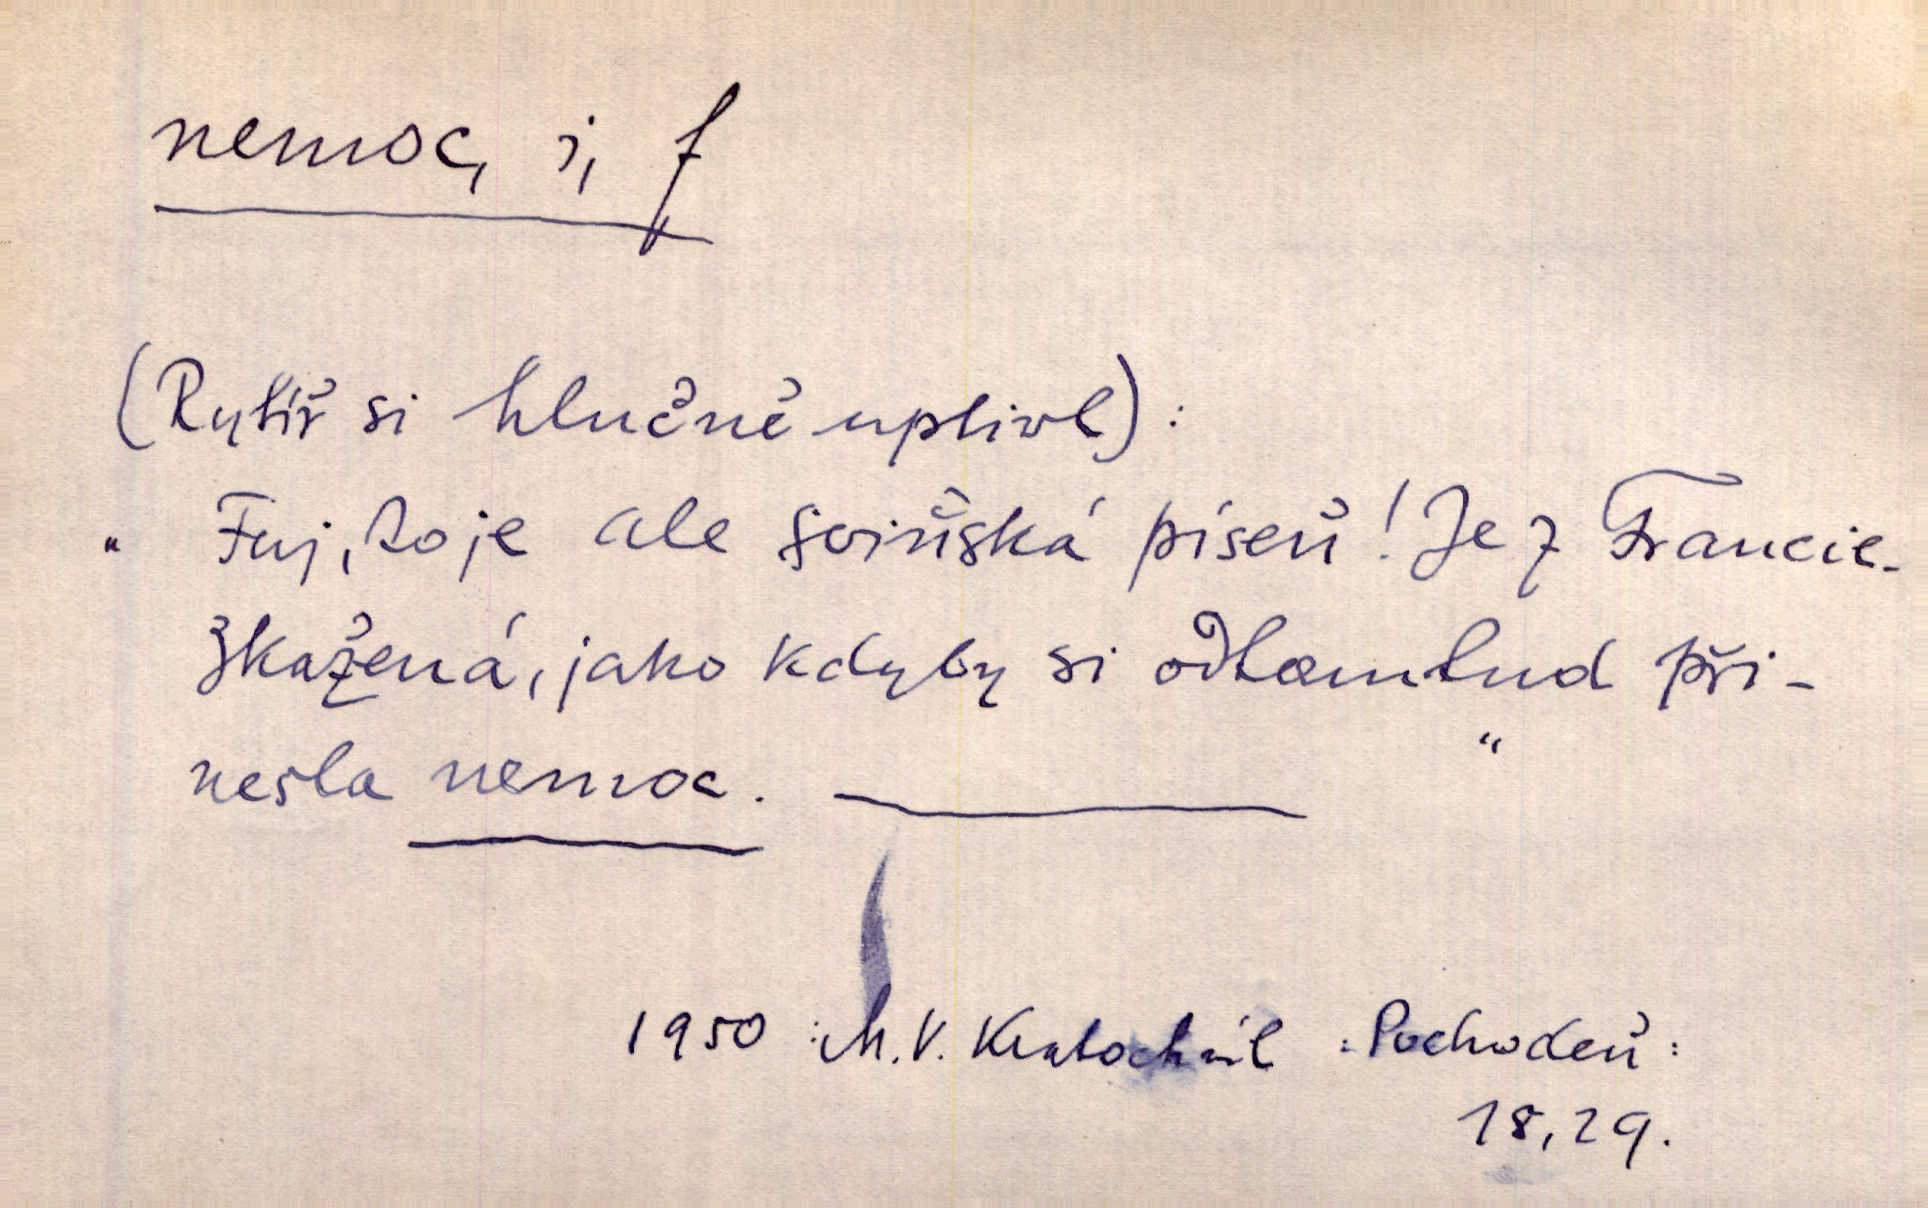 nemoc, i, f
(Rytíř si hlučně uplivl):
„Fuj, to je ale sviňská píseň! Je z Francie.
Zkažená, jako kdyby si odtamtud při-
nesla nemoc. “
1950 : M. V. Kratochvíl : Pochodeň :
18, 29.